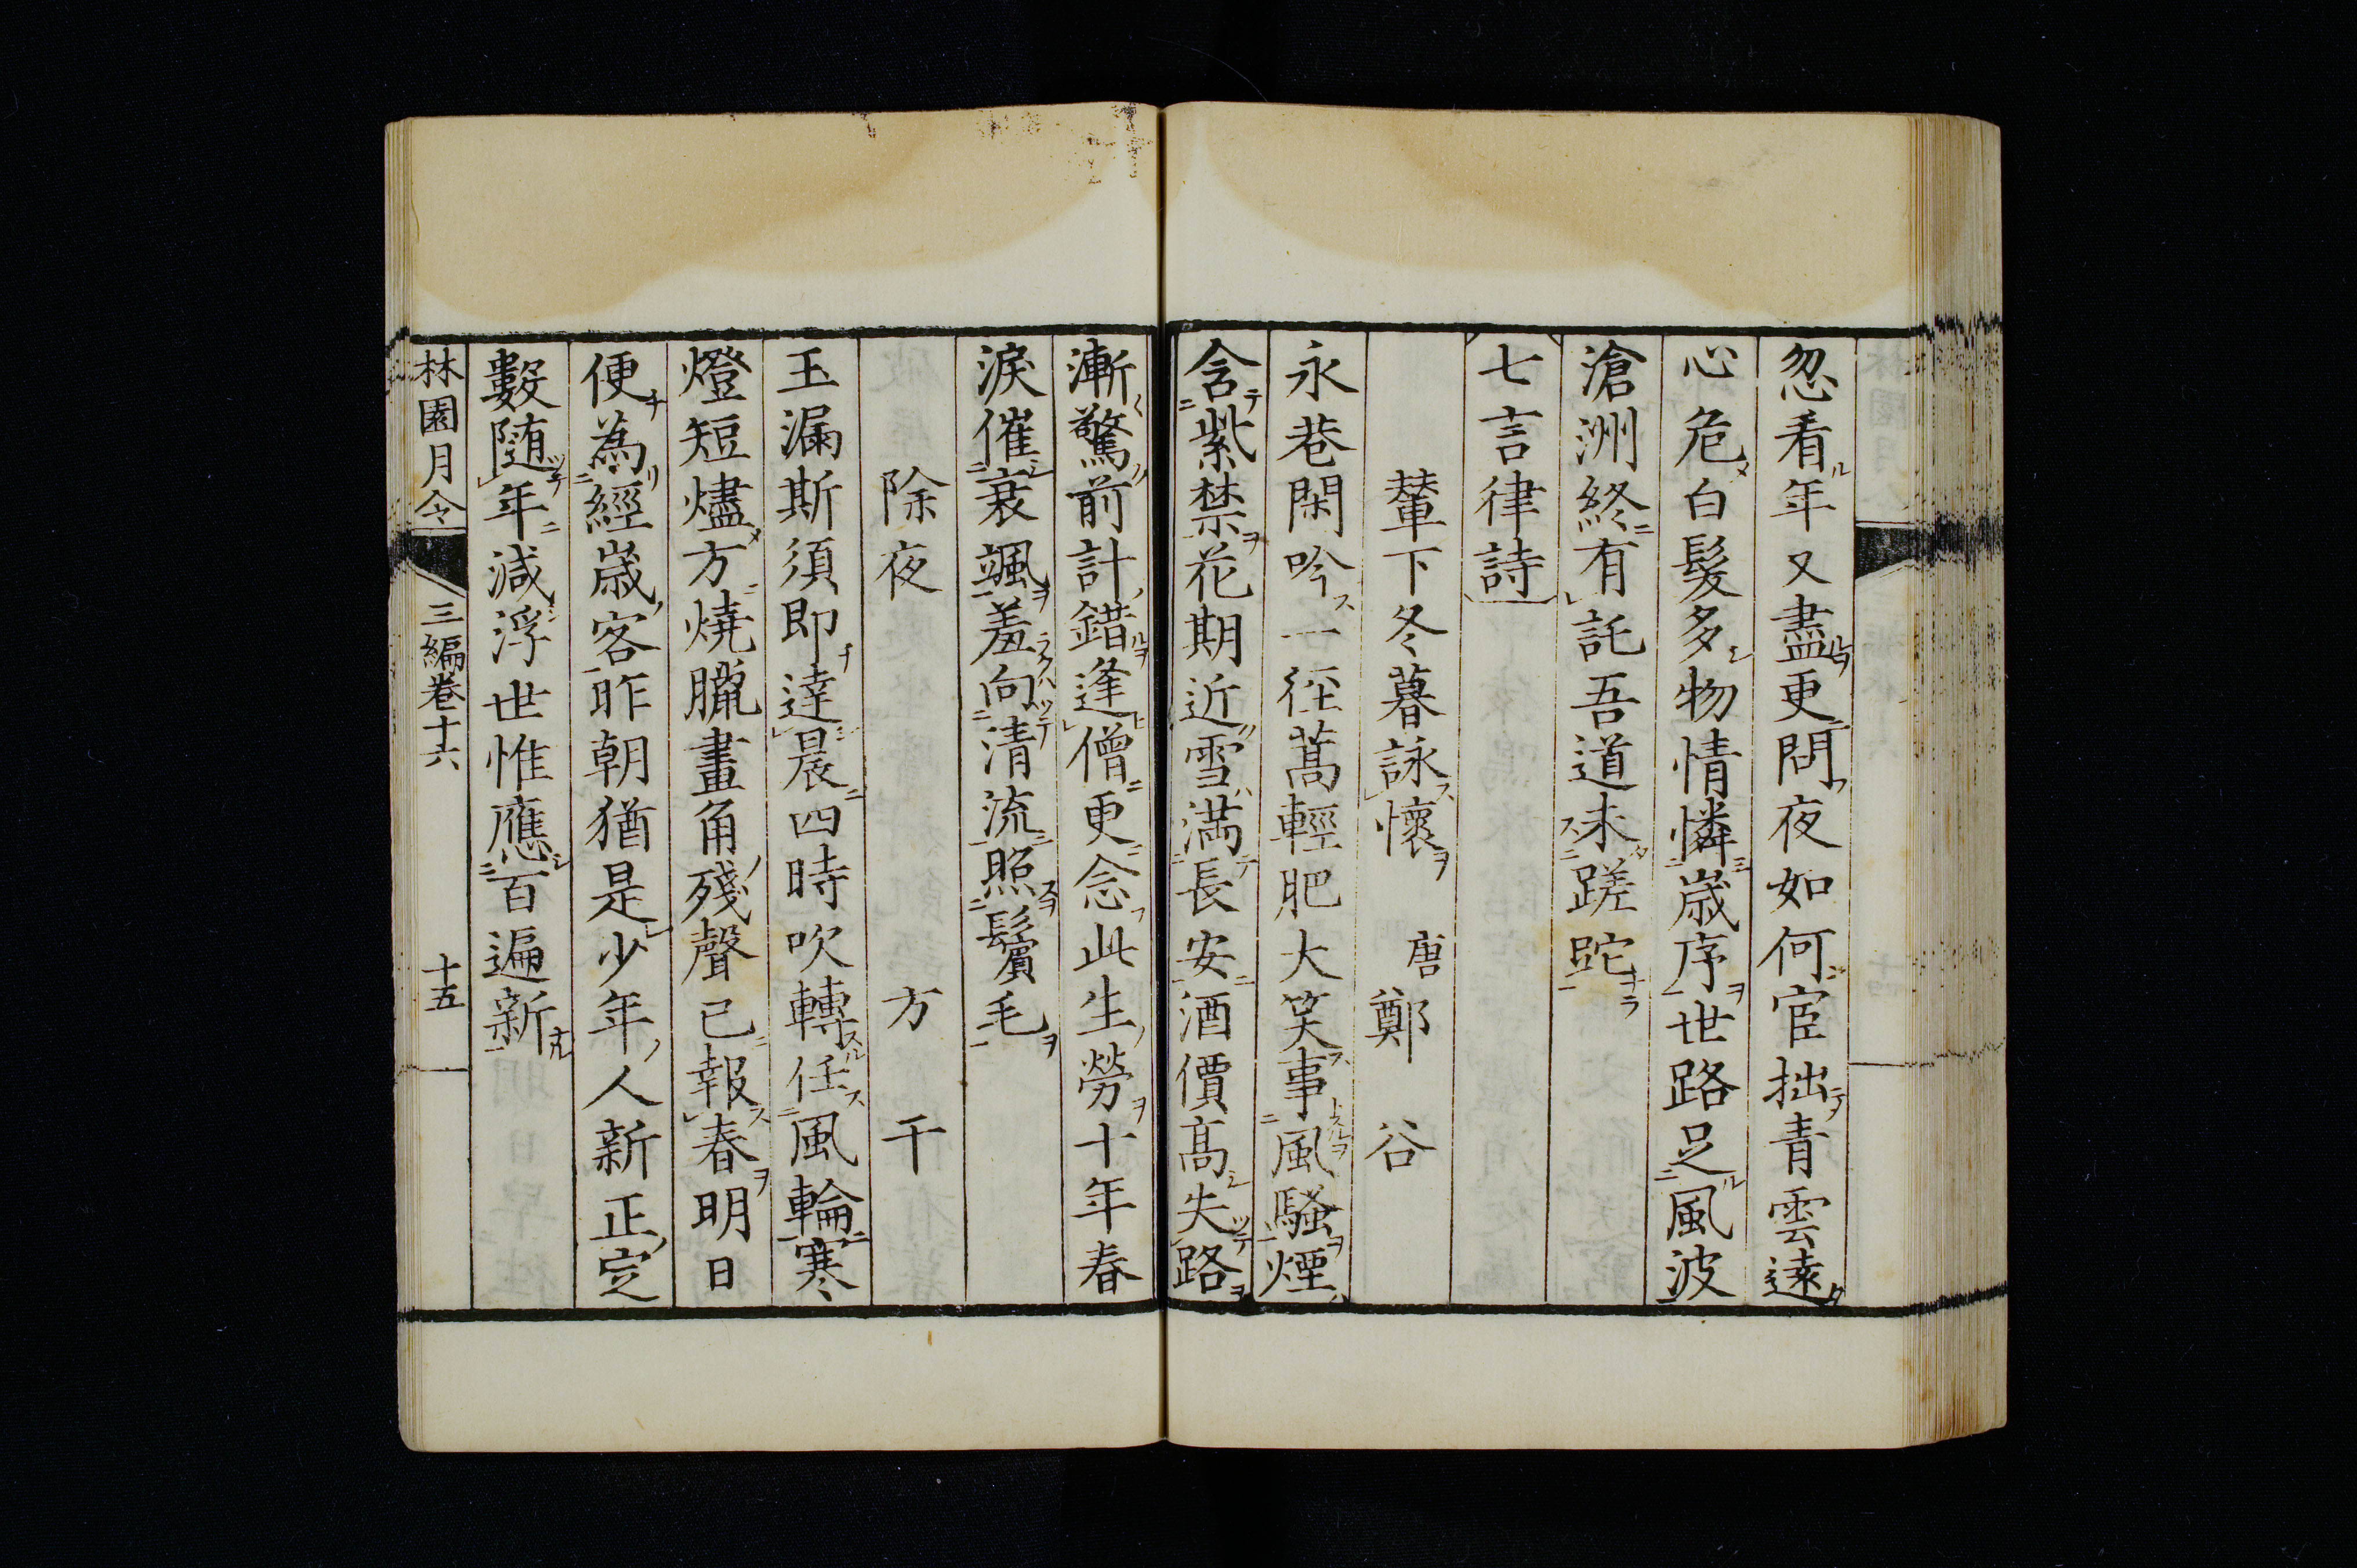 忽看年又盡更問夜如何宦拙青雲遠
心危白髮多物情憐歳序世路足風波
滄洲終有託吾道未蹉跎
七言律詩
輦下冬暮詠懷　唐鄭谷
永巷閑吟一徑蒿輕肥大笑事風騷煙
含紫禁花期近雪滿長安酒價高失路
漸驚前計錯逢僧更念此生勞十年春
淚催衰颯羞向清流照鬢毛
除夜　方干
玉漏斯須即達晨四時吹轉任風輪寒
燈短燼方燒臘畫角殘聲已報春明日
便為經歳客昨朝猶是少年人新正定
數随年減浮世惟應百遍新
林園月令　三編卷十六　十五